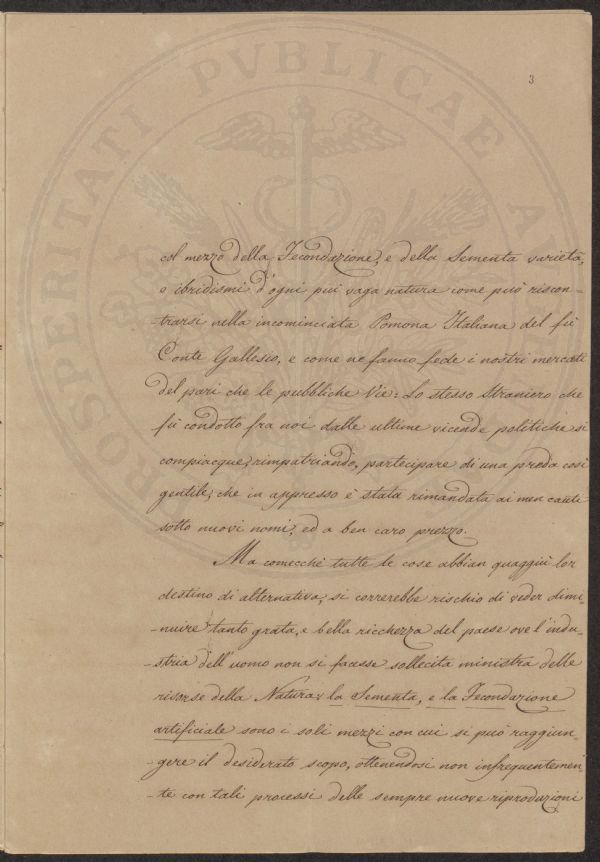 3
PROSPERITATI PVBLICAE AV
col mezzo della Fecondazione, e della Sementa varietà,
e ibridismi d'ogni piú vaga natura come può riscon-
-trarsi nella incominciata Pomona Italiana del fù
Conte Gallesio, e come ne fanno fede i nostri mercati
del pari che le pubbliche Vie. Lo stesso Straniero che
fù condotto fra noi dalle ultime vicende politiche si
compiacque, rimpatriando, partecipare di una preda così
gentile; che in appresso è stata rimandata ai men cauti
sotto nuovi nomi, ed a ben caro prezzo.
Ma comecchè tutte le cose abbian quaggiù lor
destino di alternativa, si correrebbe rischio di veder dimi-
-nuire tanto grata, e bella ricchezza del paese ove l'indu-
-stria dell'uomo non si facesse sollecita ministra delle
risorse della Natura: la Sementa, e la Fecondazione
artificiale sono i soli mezzi con cui si può raggiun-
-gere il desiderato scopo, ottenendosi non infrequentemen-
-te con tali processi delle sempre nuove riproduzioni